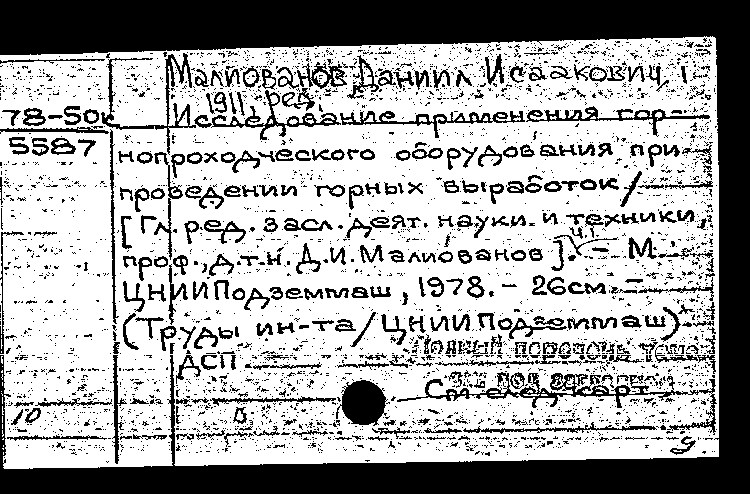 Малиованов Даниил Исаакович,
1911, ред.
78-50к Исследование применения гор-
5587 нопроходческого оборудования при
проведении горных выработок/
[Гл. ред. засл. деят. науки и техники,
проф., д.т.н. Д.И. Малиованов]. Ч.1 - М.:
ЦНИИПодземмаш, 1978. - 26см. -
(Труды ин-та/ЦНИИПодземмаш).
Полный перечень
ДСП
См. след. карт
10
9